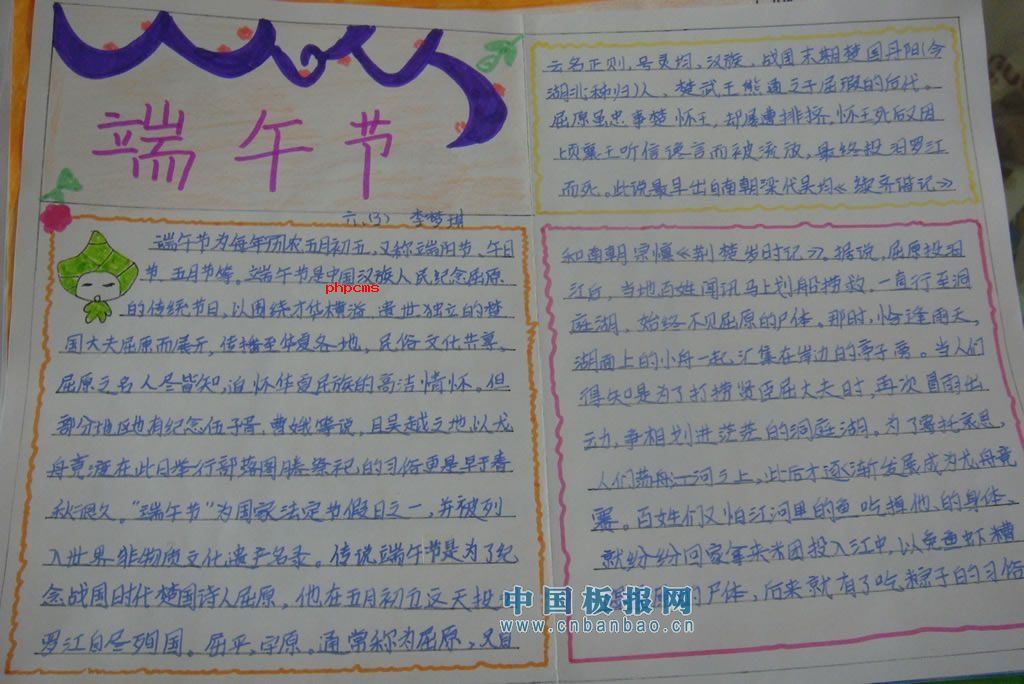 端午节
六.(3) 李梦琪
端午节为每年历农五月初五,又称端阳节、午日
节、五月节等。端午节是中国汉族人民纪念屈原
phpcms
的传统节日,以围绕才华横溢、遗世独立的楚
国大夫屈原而展示,传播至华夏各地,民俗文化共享,
屈原之名人尽皆知,追怀华夏民族的高洁情怀。但
部分地区也有纪念伍子胥、曹娥等说,且吴越之地以龙
舟竞渡在此日举行部落图腾祭祀的习俗更是早于春
秋很久。“端午节”为国家法定节假日之一,并被列
入世界非物质文化遗产名录。传说端午节是为了纪
念战国时代楚国诗人屈原,他在五月初五这天投
罗江自尽殉国。屈平,字原。通常称为屈原,又自
云名正则,号灵均,汉族,战国末期楚国丹阳(今
湖北秭归)人,楚武王熊通之子屈瑕的后代。
屈原虽忠事楚怀王,却屡遭排挤,怀王死后又因
顷襄王听信谗言而被流放,最终投汨罗江
而死。此说最早出自南朝梁代吴均《续齐谐记》
和南朝宗懔《荆楚岁时记》。据说,屈原投汨
江后,当地百姓闻讯马上划船捞救,一直行至洞
庭湖,始终不见屈原的尸体。那时,恰逢雨天,
湖面上的小舟一起汇集在岸边的亭子旁。当人们
得知是为了打捞贤臣屈大夫时,再次冒雨出
动,争相划进茫茫的洞庭湖。为了寄托哀思,
人们荡舟江河之上,此后才逐渐发展成为龙舟竞
赛。百姓们又怕江河里的鱼吃掉他的身体,
就纷纷回家拿来米团投入江中,以免鱼虾糟
的尸体,后来就有了吃粽子的习俗
中国板报网
www.cnbanbao.cn